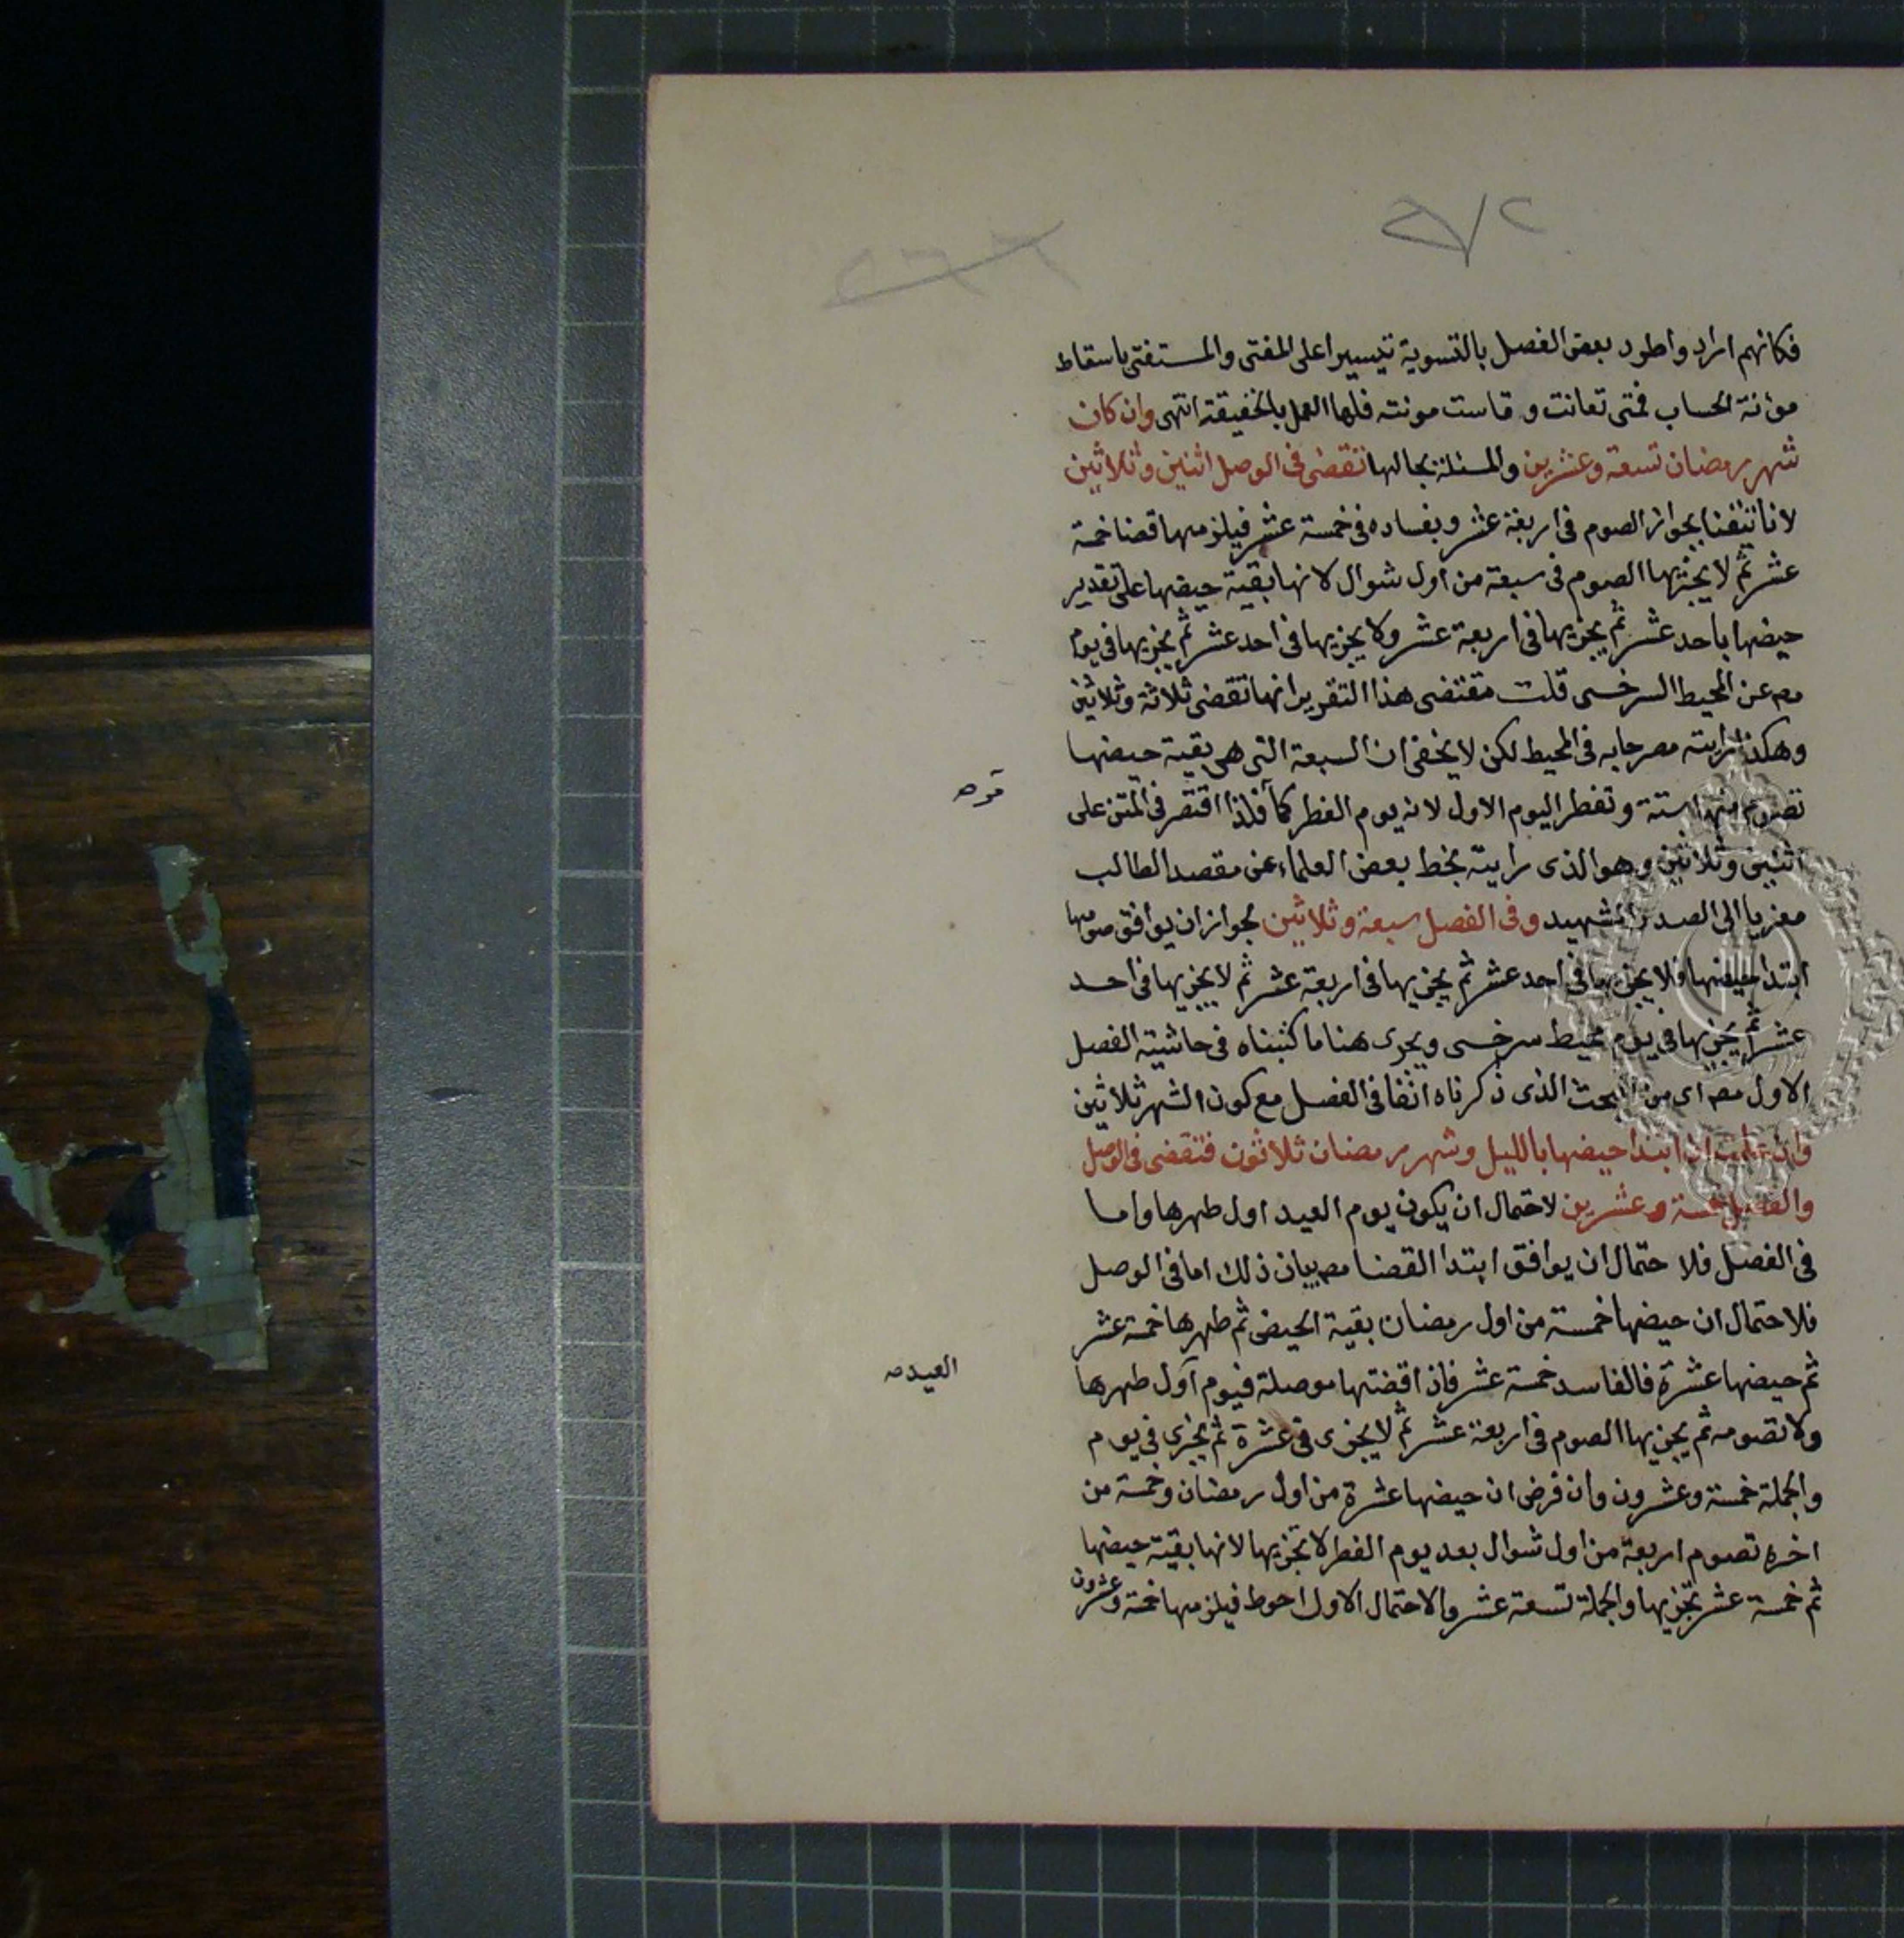 فكانهم ارادوا طرد بعض الفصل بالتسوية تيسيرا على المفتي والمستفتي باسقاط
مؤنة الحساب فمتى تعانت و قاست مونته فلها العمل بالحقيقة انتهى وان كان
شهر رمضان تسعة وعشرين والمسئلة بحالها تقضى فى الوصل اثنين وثلاثين
لانا تيقنا بجواز الصوم فى اربعة عشر وبفساده فى خمسة عشر فيلزمها قضا خمسة
عشر ثم لا يجزيها الصوم فى سبعة من اول شوال لانها بقية حيضها على تقدير
حيضها باحد عشر ثم يجزيها فى اربعة عشر ولا يجزيها فى احد عشر ثم يجزيها فى يوم
مص عن المحيط السرخسى قلت مقتضى هذا التقرير انها تقضى ثلاثة وثلاثين
وهكذا رايته مصرحا به فى المحيط لكن لا يخفى ان السبعة التى هى بقية حيضها
تصوم منها ستة وتفطر اليوم الاول لانه يوم الفطر كما فلذا اقتصر فى المتن على
اثنين وثلاثين وهو الذى رايته بخط بعض العلماء عن مقصد الطالب
معزيا الى الصدر الشهيد وفى الفصل سبعة وثلاثين لجواز ان يوافق صومها
ابتدا حيضها فلا يجزيها فى احد عشر ثم يجزيها فى اربعة عشر ثم لا يجزيها فى احد
عشر ثم يجزيها فى يوم محيط سرخسى ويجرى هنا ما كتبناه فى حاشية الفصل
الاول مص اى من البحث الذى ذكرناه انفا فى الفصل مع كون الشهر ثلاثين
وان علمت ان ابتدا حيضها بالليل وشهر رمضان ثلاثون فتقضى فى الوصل
والفصل خمسة وعشرين لاحتمال ان يكون يوم العيد اول طهرها واما
فى الفصل فلا حتمال ان يوافق ابتدا القضا مص بيان ذلك اما فى الوصل
فلاحتمال ان حيضها خمسة من اول رمضان بقية الحيض ثم طهرها خمسة عشر
ثم حيضها عشرة فالفاسد خمسة عشر فاذا قضتها موصلة فيوم اول طهرها
ولا تصومه ثم يجزيها الصوم فى اربعة عشر ثم لا يجزى فى عشرة ثم يجزى فى يوم
والجملة خمسة وعشرون وان فرض ان حيضها عشرة من اول رمضان وخمسة من
اخره تصوم اربعة من اول شوال بعد يوم الفطر لا تجزيها لانها بقية حيضها
ثم خمسة عشر تجزيها والجملة تسعة عشر والاحتمال الاول احوط فيلزمها خمسة وعشرون
العيد صح